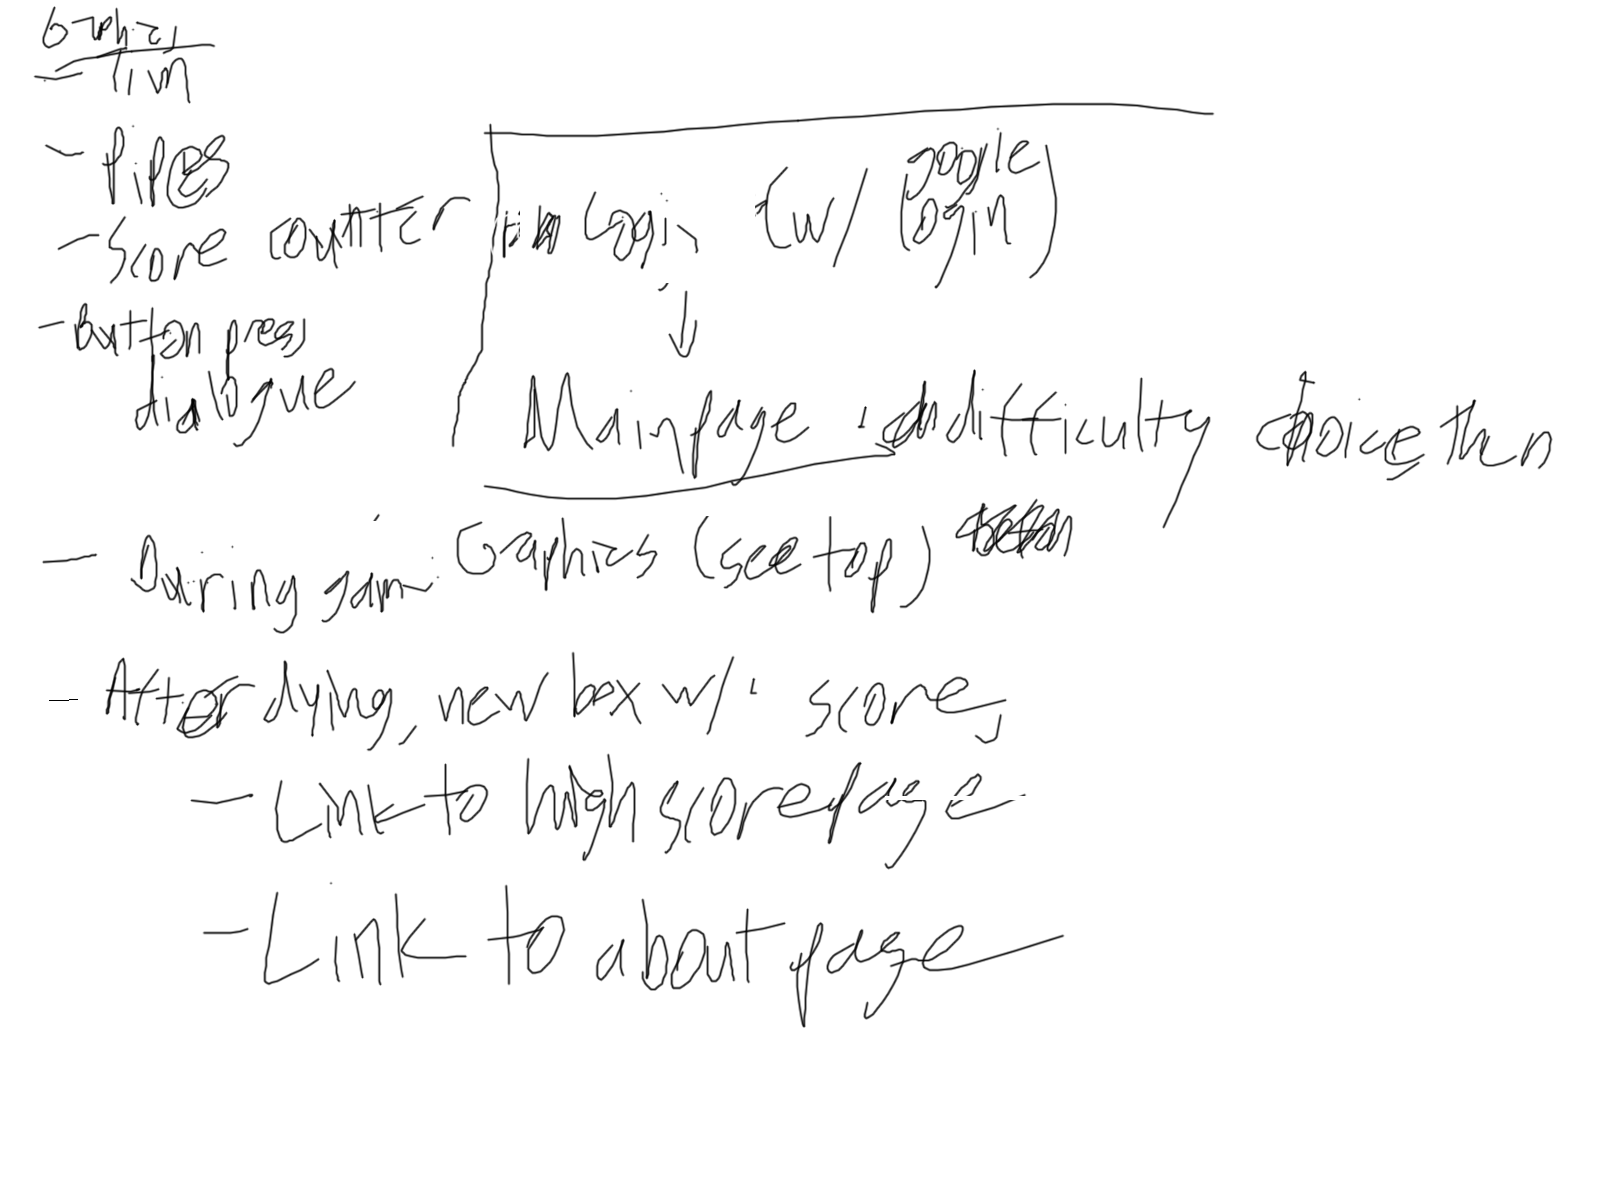 Graphics
- Tim
- Pipes
- Score counter
- Button press
dialogue
Login (w/ google login)
↓
Mainpage : difficulty choice then
- During gam Graphics (see top)
- After dying, new box w/ score,
- Link to high score page
- Link to about page